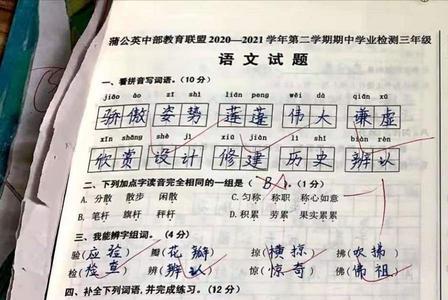 蒲公英中部教育联盟2020—2021学年第二学期期中学业检测三年级
语文试题
一、看拼音写词语。(10分)
jiāo ào zī shì lián peng wěi dà qiān xū
骄傲 姿势 莲蓬 伟大 谦虚
xīn shǎng shè jì xiū jiàn lì shǐ biàn rèn
欣赏 设计 修建 历史 辨认
二、下列加点字读音完全相同的一组是( B )。(1分)
A. 分散 散步 闲散 C. 匀称 称职 称心如意
B. 笔杆 旗杆 秤杆 D. 积累 劳累 果实累累
三、我能辨字组词。(4分)
验(应验) 瓣(花瓣) 掠(横掠) 拂(吹拂)
检(检查) 辨(辨认) 惊(惊奇) 佛(佛祖)
四、补全下列词语,并完成练习。(12分)